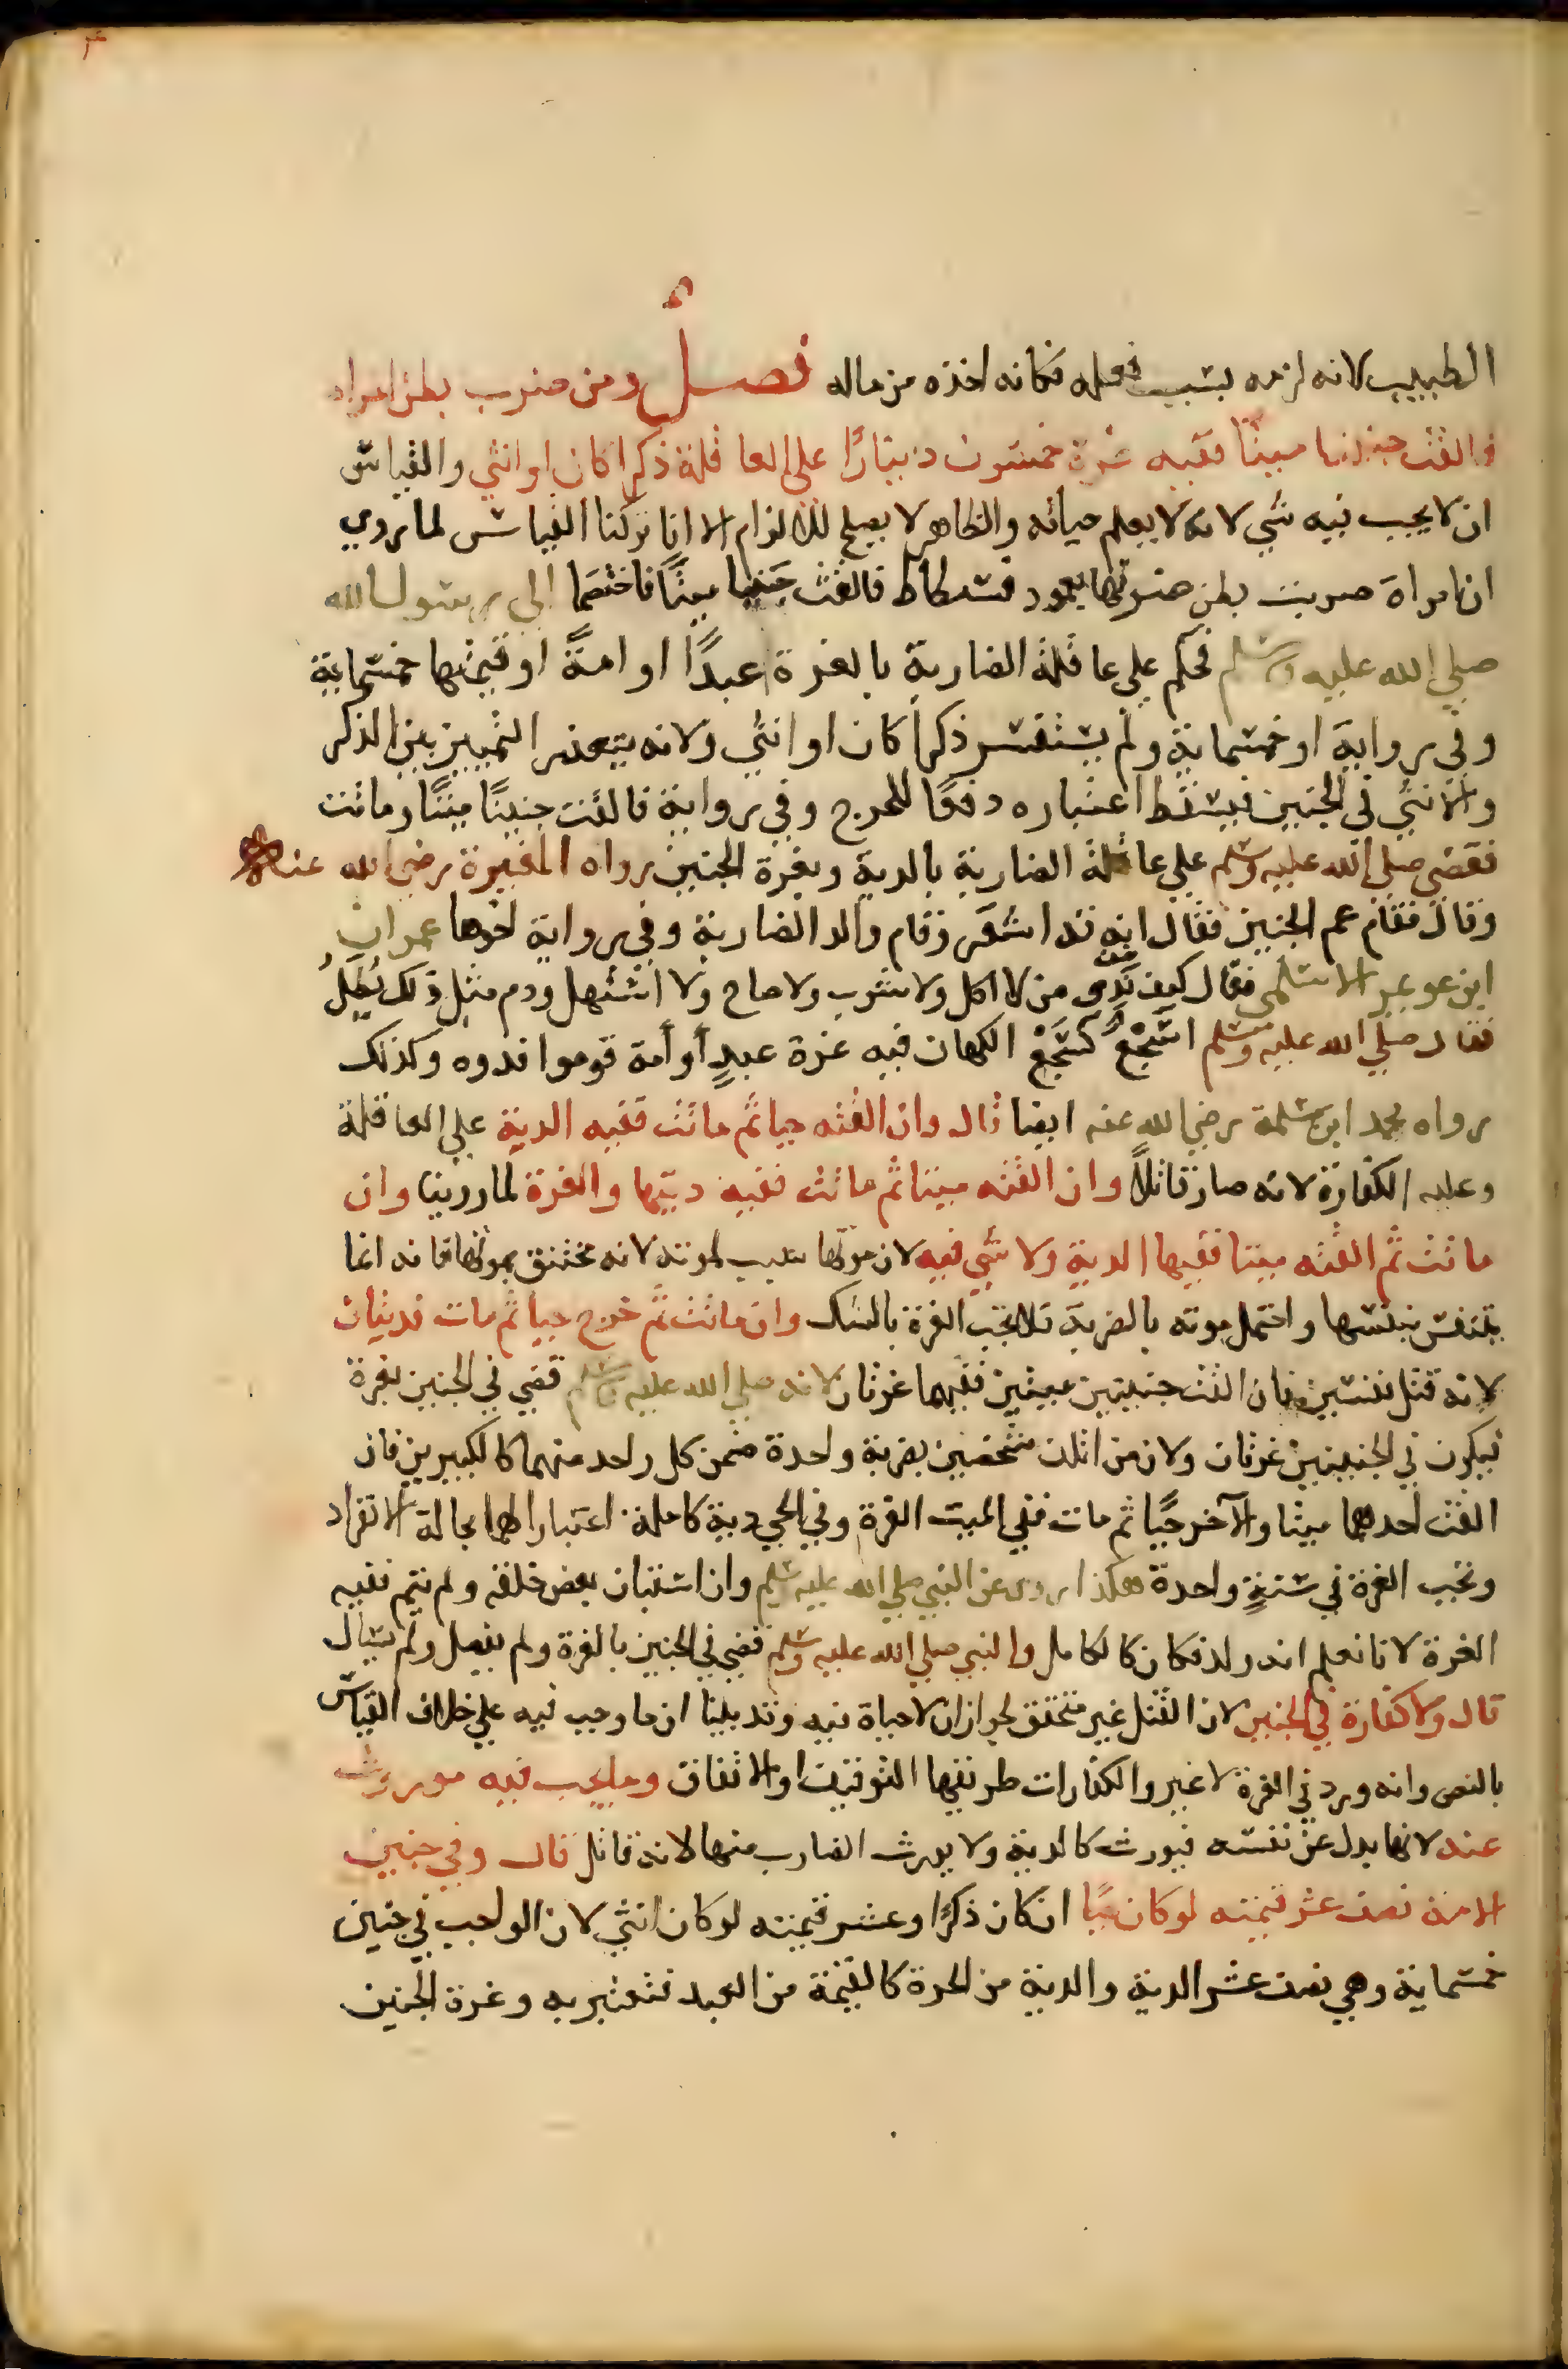 الطبيب لانه لزمه بسبب فعله فكانه اخذه من ماله فصل ومن ضرب بطن امراه
فالقت جنينا ميتا ففيه غرة خمسون دينارا على العاقلة ذكرا كان او انثى والقياس
ان لا يجب فيه شي لانه لا يعلم حياته والظاهر لا يصلح للالزام الا انا تركنا القياس لما روي
ان امراة ضربت بطن ضرتها بعمود فسطاط فالقت جنينا ميتا فاختصما الى رسول الله
صلى الله عليه وسلم فحكم على عاقلة الضاربة بالغرة عبدًا او امةً او قيمتها خمسماية
وفي رواية او خمسماية ولم يستفسر ذكرا كان او انثى ولانه يتعذر التمييز بين الذكر
والانثى في الجنين فيسقط اعتباره دفعًا للحرج وفي رواية فالقت جنينًا ميتًا وماتت
فقضى صلى الله عليه وسلم على عاقلة الضاربة بالدية وبغرة الجنين رواه المغيرة رضي الله عنه
وقال فقام عم الجنين فقال انه قد اشعر وقام والد الضاربة وفي رواية اخوها عمران
ابن عويمر الاسلمى فقال كيف ندى من لا اكل ولا شرب ولا صاح ولا استهل ودم مثل ذلك يُطَلُ
فقال صلى الله عليه وسلم اسَجْعٌ كسَجْع الكهان فيه غرة عبدٍ أو أمة قوموا فدوه وكذلك
رواه محمد ابن مسلمة رضي الله عنه ايضا قال وان القته حيا ثم ماتت ففيه الدية على العاقلة
وعليه الكفارة لانه صار قاتلاً وان القته ميتا ثم ماتت ففيه ديتها والغرة لما روينا وان
ماتت ثم القته ميتا ففيها الدية ولا شي فيه لان موتها سبب لموته لانه يختنق بموتها فانه انما
يتنفس بنفسها واحتمل موته بالضربة فلا تجب الغرة بالشك وان ماتت ثم خرج حيا ثم مات فديتان
لانه قتل نفسين فان القت جنينين ميتين ففيهما غرتان لانه صلى الله عليه وسلم قضى في الجنين بغرة
فيكون في الجنينين غرتان ولان من اتلف شخصين بضربة واحدة ضمن كل واحد منهما كالكبيرين فان
القت احدهما ميتا والآخر حيًا ثم مات ففي الميت الغرة وفي الحي دية كاملة اعتبارا لهما بحالة الانفراد
وتجب الغرة في سنةٍ واحدة هكذا روى عن النبي صلى الله عليه وسلم وان استبان بعض خلقه ولم يتم ففيه
الغرة لانا نعلم انه ولد فكان كالكامل والنبي صلى الله عليه وسلم قضى في الجنين بالغرة ولم يفصل ولم يسال
قال ولا كفارة في الجنين لان القتل غير متحقق لجواز ان لا حياة فيه وقد بينا ان ما وجب فيه على خلاف القياس
بالنص وانه ورد في الغرة لا غير والكفارات طريقها التوقيف او الاتفاق وما يجب فيه موروث
عنه لانها بدل عن نفسه فيورث كالدية ولا يرث الضارب منها لانه قاتل قال وفي جنين
الامة نصف عشر قيمته لو كان حيًا ان كان ذكرًا وعشر قيمته لو كان انثى لان الواجب في جنين
خمسماية وهي نصف عشر الدية والدية من الحرة كالقيمة من العبد فتعتبر به وغرة الجنين